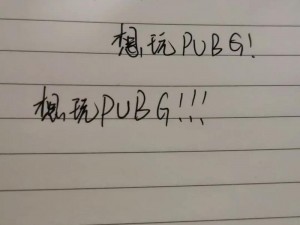 想玩PUBG!
想玩PUBG!!!